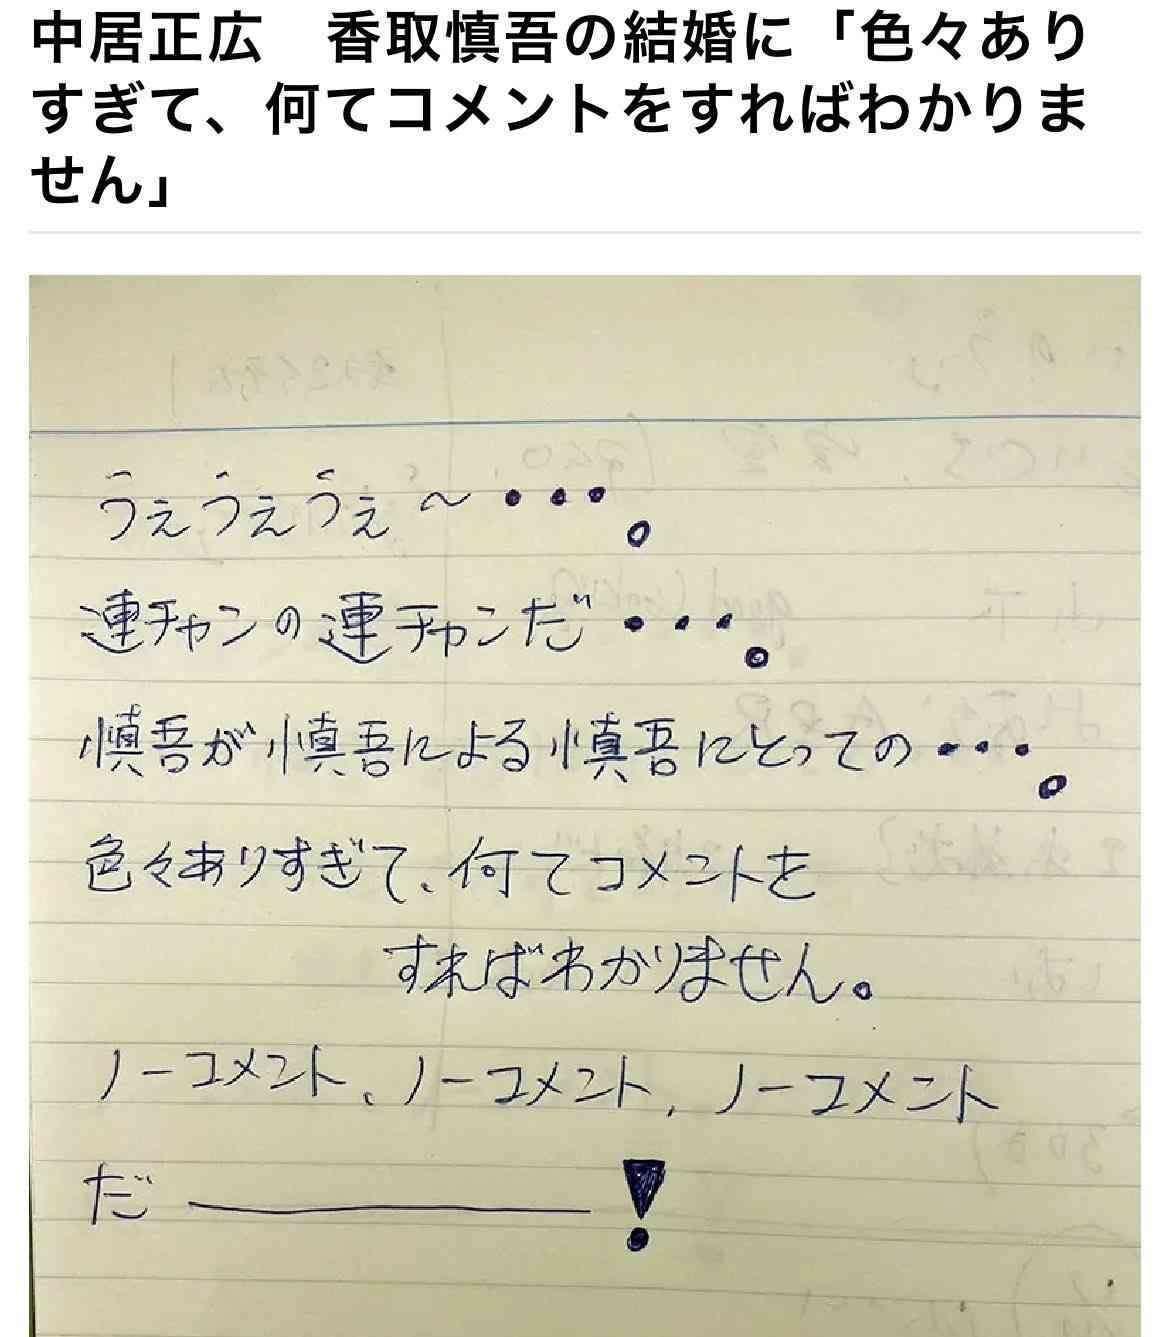 中居正広　香取慎吾の結婚に「色々あり
すぎて、何てコメントをすればわかりま
せん」
うぇうぇうぇ～・・・。
連チャンの連チャンだ・・・。
慎吾が慎吾による慎吾にとっての・・・。
色々ありすぎて、何てコメントを
すればわかりません。
ノーコメント、ノーコメント、ノーコメント
だ――――!